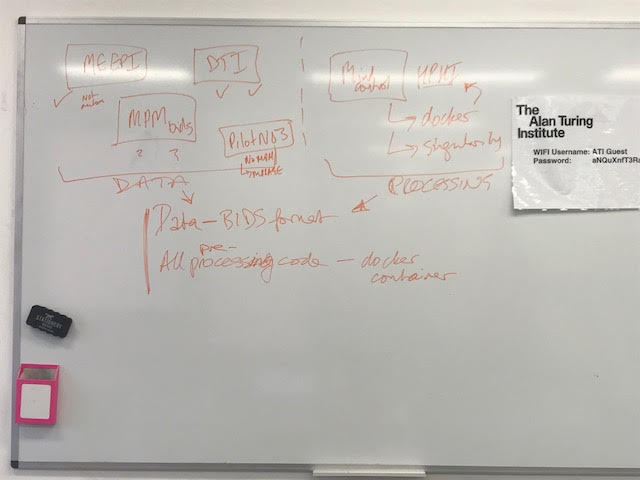 MEEPI
DTI
Not
MPM bids
2 3
Pilot N03
DATA
Mind control
HPMI
docker
singularity
PROCESSING
Data - BIDS format
pre-
All processing code - docker
container
The
Alan Turing
Institute
WIFI Username: ATI Guest
Password: aNQuXnfT3R